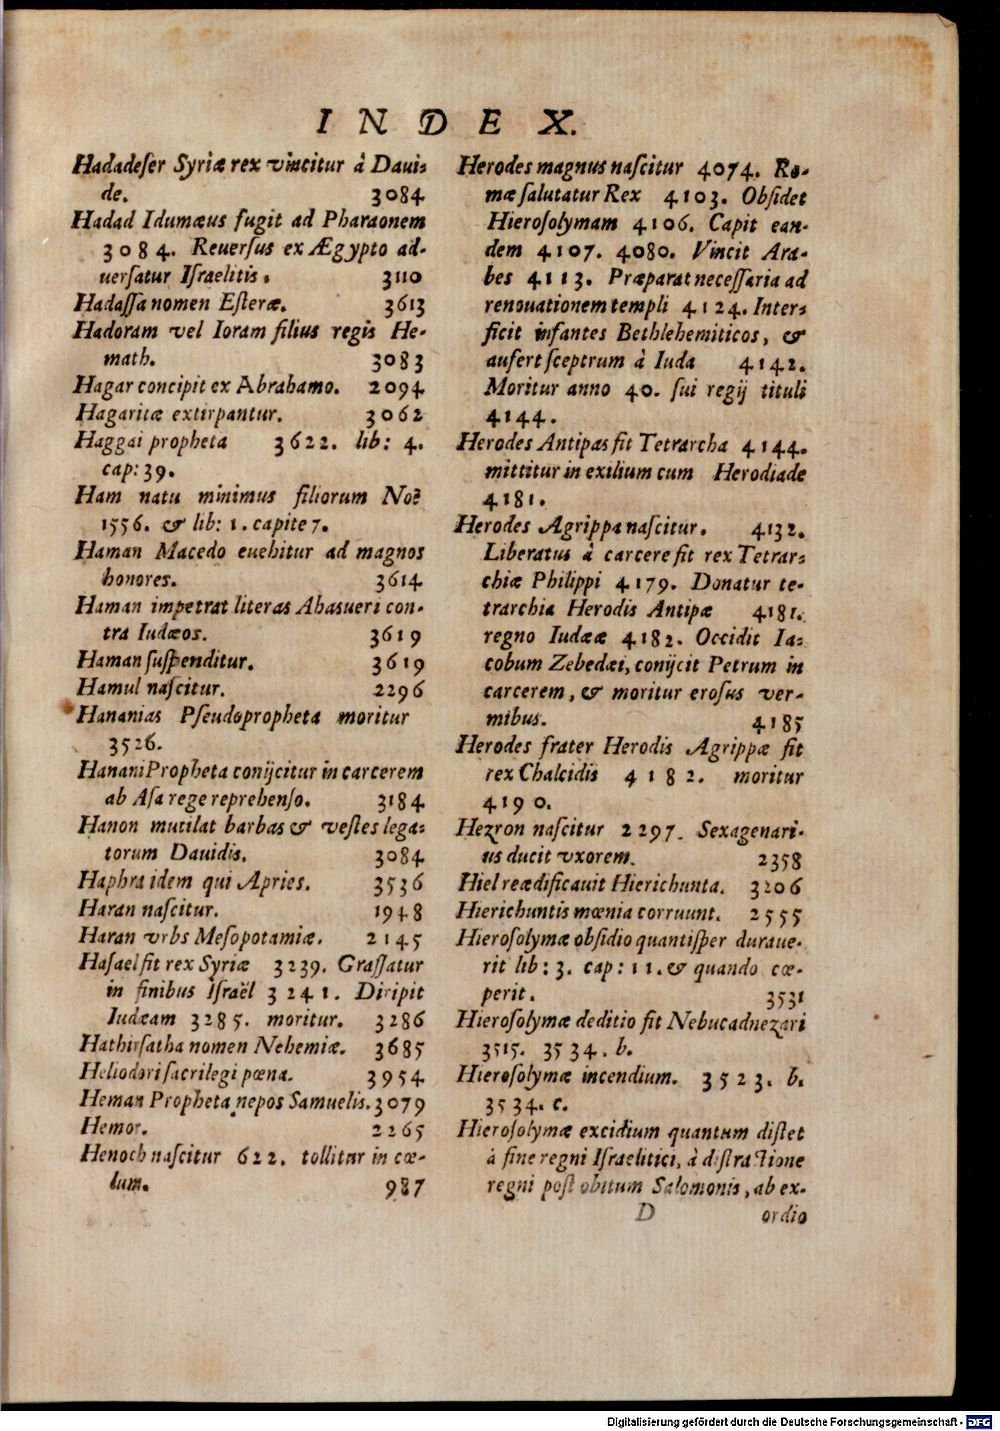 INDEX.
Hadadeſer Syriæ rex vincitur à Daui-
de. 3084
Hadad Idumæus fugit ad Pharaonem
3084. Reuerſus ex Ægypto ad-
uerſatur Iſraelitis. 3110
Hadaſſa nomen Eſteræ. 3613
Hadoram vel Ioram filius regis He-
math. 3083
Hagar concipit ex Abrahamo. 2094
Hagaritæ extirpantur. 3062
Haggai propheta 3622. lib: 4.
cap: 39.
Ham natu minimus filiorum Noë
1556. & lib: 1. capite 7.
Haman Macedo euehitur ad magnos
honores. 3614
Haman impetrat literas Ahasueri con-
tra Iudæos. 3619
Haman ſuſpenditur. 3619
Hamul naſcitur. 2296
Hananias Pſeudopropheta moritur
3526.
Hanani Propheta conijcitur in carcerem
ab Aſa rege reprehenſo. 3184
Hanon mutilat barbas & veſtes lega-
torum Dauidis. 3084
Haphra idem qui Apries. 3536
Haran naſcitur. 1948
Haran vrbs Meſopotamiæ. 2145
Haſael fit rex Syriæ 3239. Graſſatur
in finibus Iſraël 3241. Diripit
Iudæam 3285. moritur. 3286
Hathirſatha nomen Nehemiæ. 3685
Heliodori ſacrilegi pœna. 3954
Heman Propheta nepos Samuelis. 3079
Hemor. 2265
Henoch naſcitur 622. tollitur in cœ-
lum. 987
Herodes magnus naſcitur 4074. Ro-
mæ ſalutatur Rex 4103. Obſidet
Hieroſolymam 4106. Capit ean-
dem 4107. 4080. Vincit Ara-
bes 4113. Præparat neceſſaria ad
renouationem templi 4124. Inter-
ficit infantes Bethlehemiticos, &
aufert ſceptrum à Iuda 4142.
Moritur anno 40. ſui regij tituli
4144.
Herodes Antipas fit Tetrarcha 4144.
mittitur in exilium cum Herodiade
4181.
Herodes Agrippa naſcitur. 4132.
Liberatus à carcere fit rex Tetrar-
chiæ Philippi 4179. Donatur te-
trarchia Herodis Antipæ 4181.
regno Iudææ 4182. Occidit Ia-
cobum Zebedæi, conijcit Petrum in
carcerem, & moritur eroſus ver-
mibus. 4185
Herodes frater Herodis Agrippæ fit
rex Chalcidis 4182. moritur
4190.
Hezron naſcitur 2297. Sexagenari-
us ducit vxorem. 2358
Hiel reædificauit Hierichunta. 3206
Hierichuntis mœnia corruunt. 2555
Hieroſolymæ obſidio quantiſper duraue-
rit lib: 3. cap: 11. & quando cœ-
perit. 3531
Hieroſolymæ deditio fit Nebucadnezari
3515. 3534. b.
Hieroſolymæ incendium. 3523. b.
3534. c.
Hieroſolymæ excidium quantum diſtet
à fine regni Iſraelitici, à diſtractione
regni poſt obitum Salomonis, ab ex-
D ordio
Digitalisierung gefördert durch die Deutsche Forschungsgemeinschaft - DFG